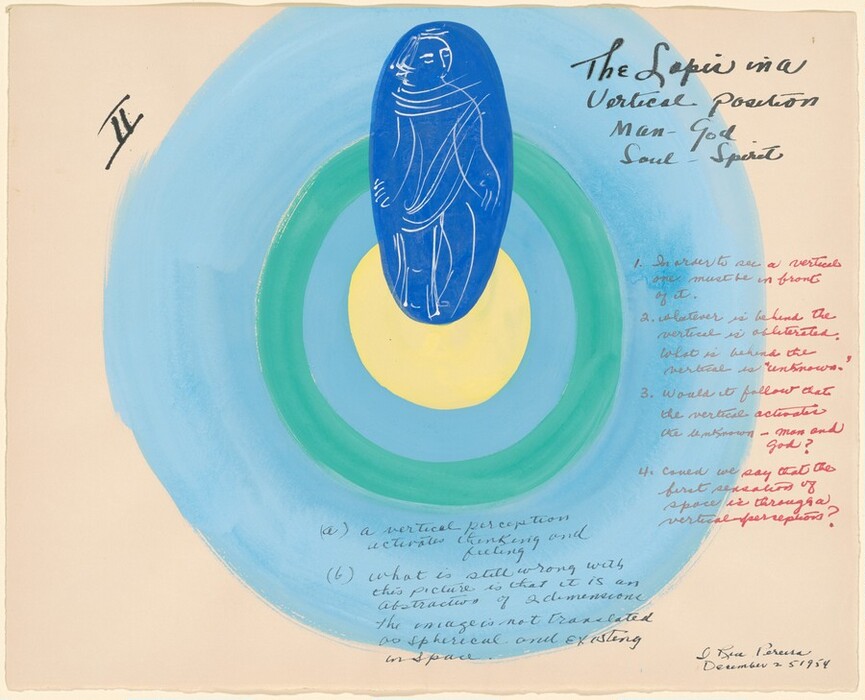 II
The Lapis in a
Vertical Position
Man - God
Soul - Spirit
1. In order to see a vertical
one must be in front
of it.
2. whatever is behind the
vertical is obliterated.
What is behind the
vertical is "unknown."
3. Would it follow that
the vertical activates
the unknown - man and
God?
4. Could we say that the
first sensation of
space is through a
vertical perception?
(a) a vertical perception
activates thinking and
feeling
(b) what is still wrong with
this picture is that it is an
abstraction of 2 dimensions
The image is not translated
as spherical and existing
in space.
I Rice Pereira
December 25 1954